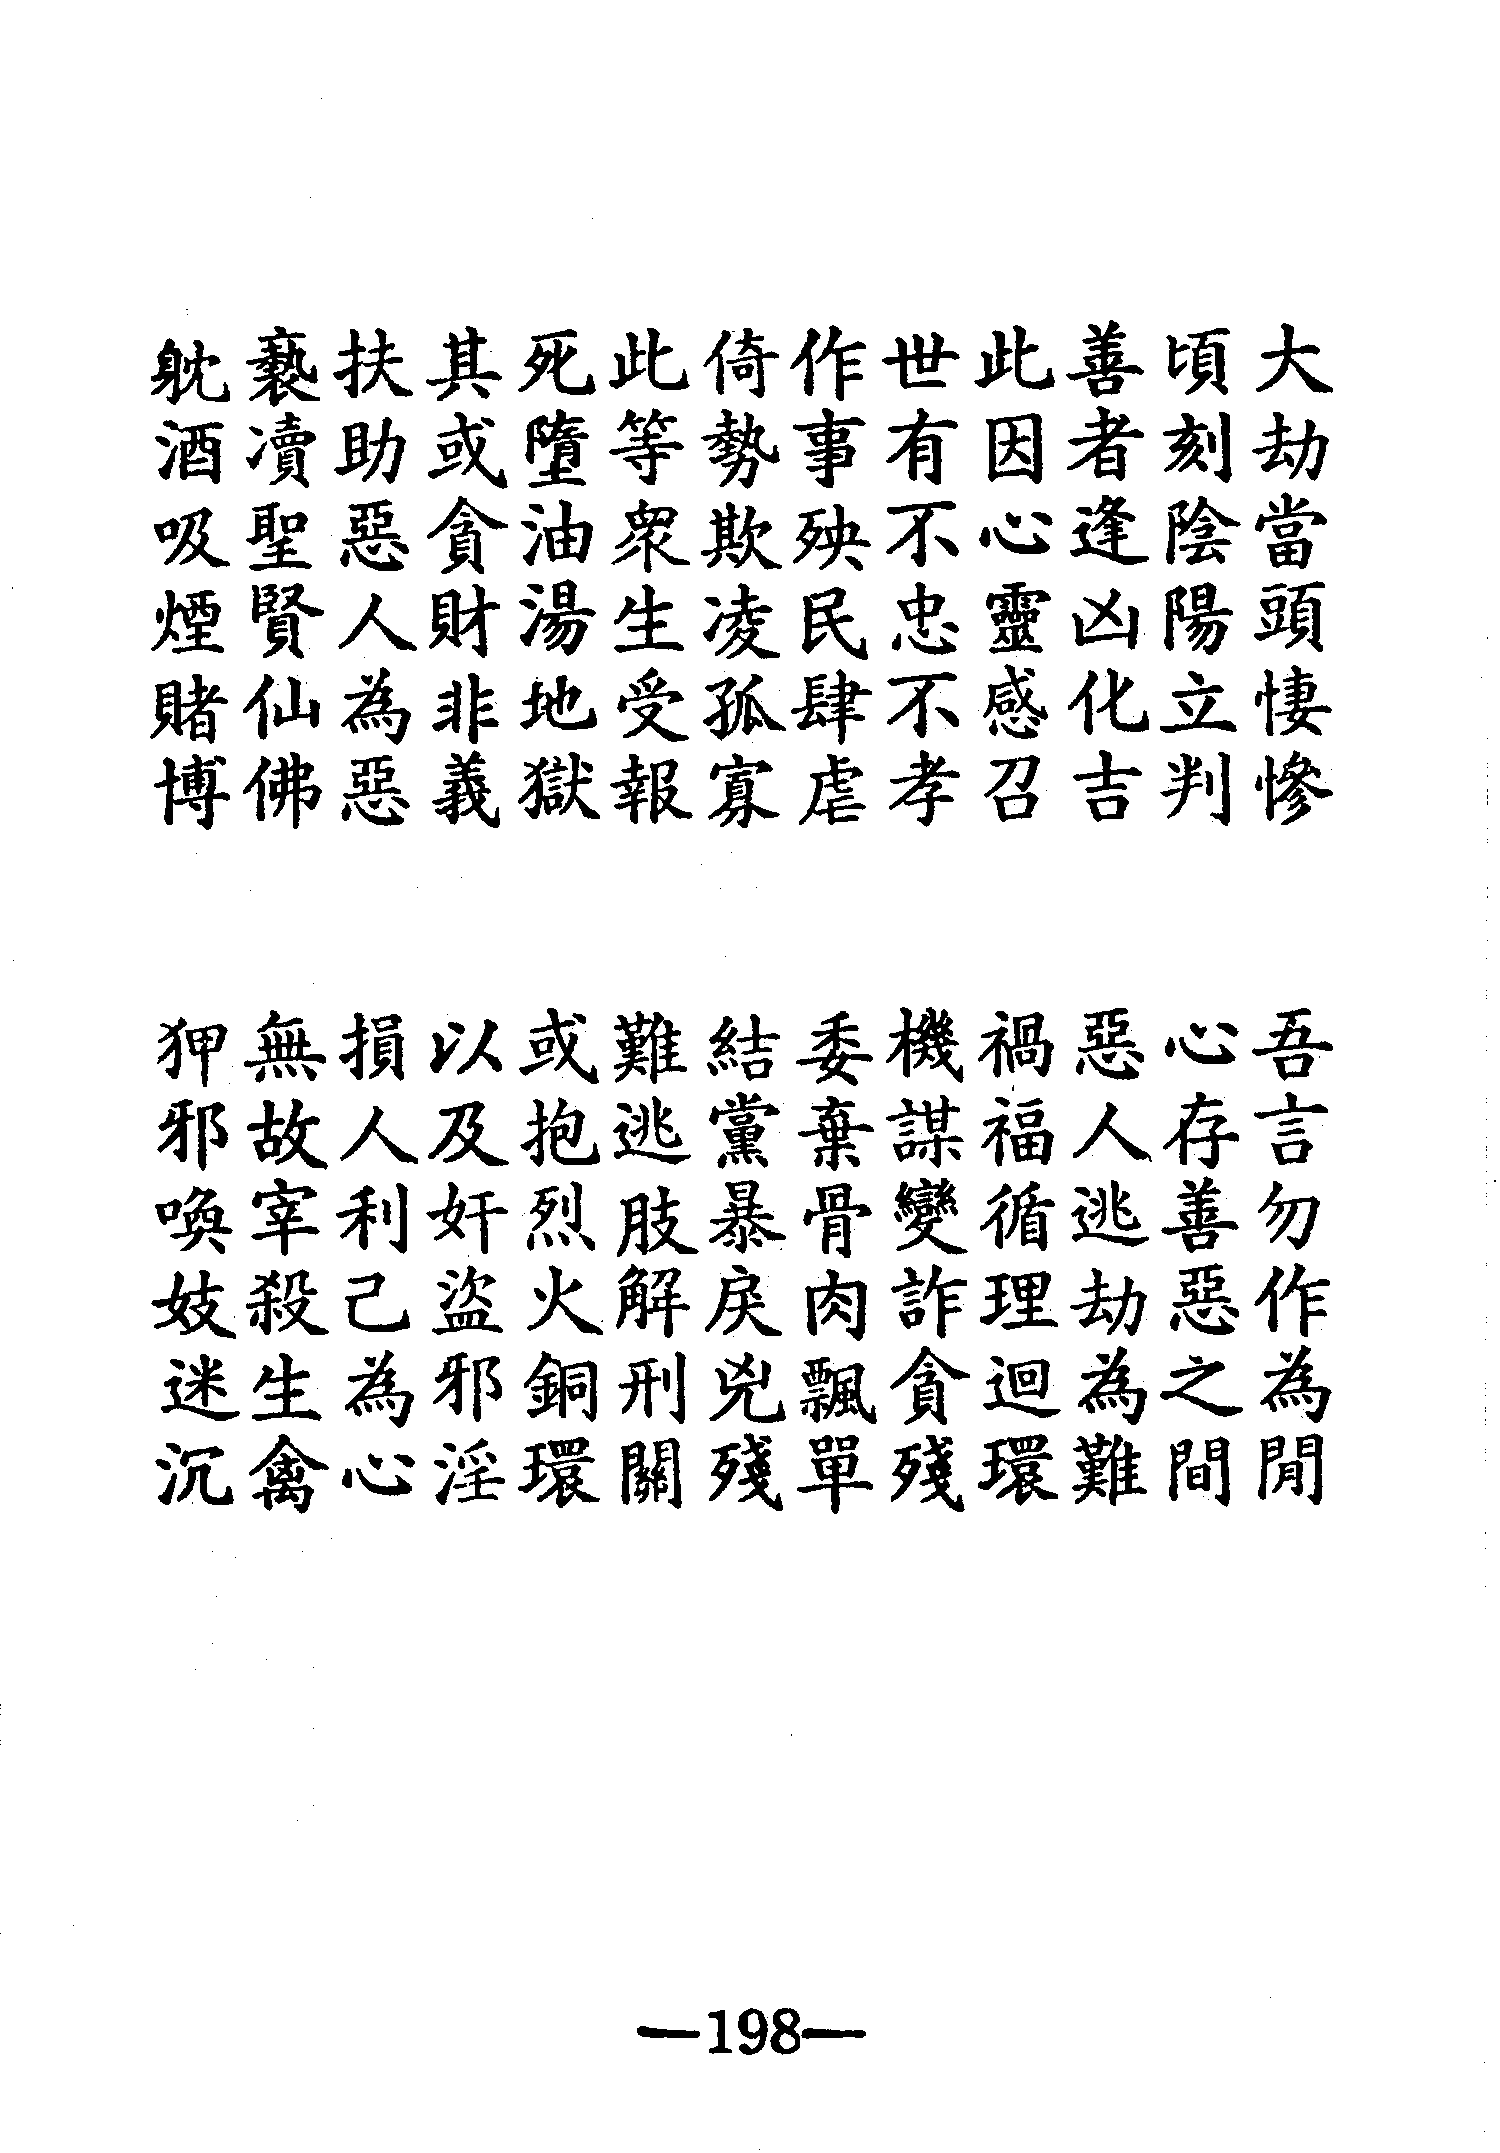 大劫當頭悽慘　吾言勿作為閒
頃刻陰陽立判　心存善惡之間
善者逢凶化吉　惡人逃劫為難
此因心靈感召　禍福循理迴環
世有不忠不孝　機謀變詐貪殘
作事殃民肆虐　委棄骨肉飄單
倚勢欺凌孤寡　結黨暴戾兇殘
此等衆生受報　難逃肢解刑關
死墮油湯地獄　或抱烈火銅環
其或貪財非義　以及奸盜邪淫
扶助惡人為惡　損人利己為心
褻凟聖賢仙佛　無故宰殺生禽
躭酒吸煙賭博　狎邪喚妓迷沉
—198—